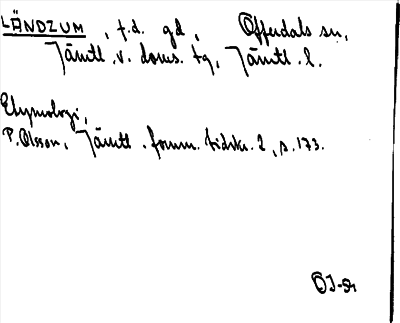 LÄNDZUM, f.d. gd, Offerdals sn,
Jämtl. v. doms. tg, Jämtl. l.
Etymologi,
P. Olsson, Jämtl. fornm. tidskr. 2, s. 173.
OJ-Sr